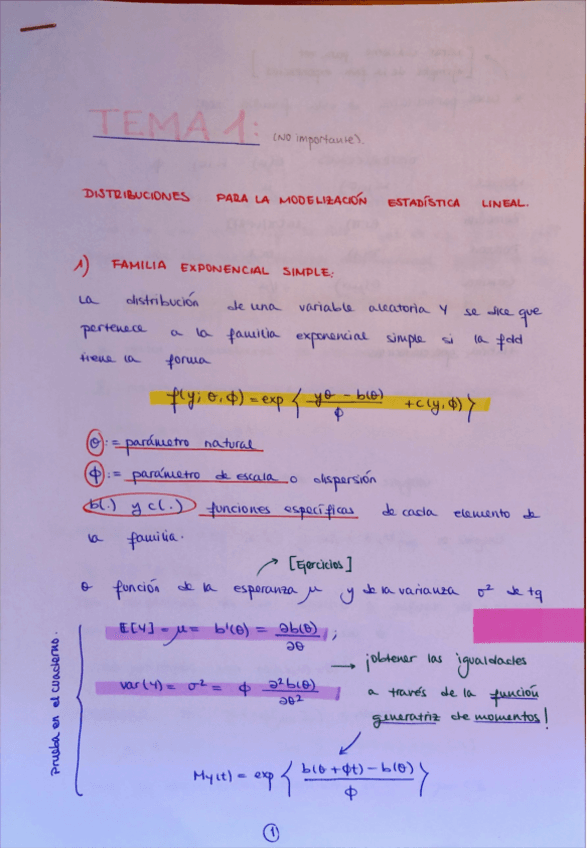 TEMA 1: (NO importante).
DISTRIBUCIONES PARA LA MODELIZACIÓN ESTADÍSTICA LINEAL.
1) FAMILIA EXPONENCIAL SIMPLE:
La distribución de una variable aleatoria Y se dice que
pertenece a la familia exponencial simple si la fdd
tiene la forma
f(y; θ, ϕ) = exp { yθ - b(θ) / ϕ + c(y, ϕ) }
θ := parámetro natural
ϕ := parámetro de escala o dispersión
b(.) y c(.) funciones específicas de cada elemento de
la familia.
→ [Ejercicios]
θ función de la esperanza μ y de la varianza σ² de tq
Prueba en el cuaderno.
E[Y] = μ = b'(θ) = ∂b(θ) / ∂θ ;
var(Y) = σ² = ϕ ∂²b(θ) / ∂θ²
→ ¡obtener las igualdades
a través de la función
generatriz de momentos!
My(t) = exp { b(θ + ϕt) - b(θ) / ϕ }
1